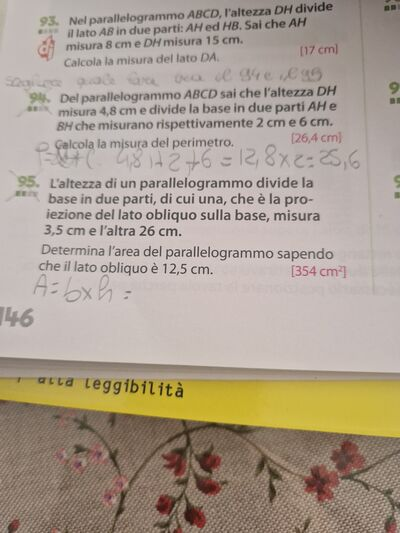 93. Nel parallelogrammo ABCD, l'altezza DH divide
il lato AB in due parti: AH ed HB. Sai che AH
misura 8 cm e DH misura 15 cm.
Calcola la misura del lato DA. [17 cm]
94. Del parallelogrammo ABCD sai che l'altezza DH
misura 4,8 cm e divide la base in due parti AH e
BH che misurano rispettivamente 2 cm e 6 cm.
Calcola la misura del perimetro. [26,4 cm]
4,8+2+6=12,8x2=25,6
95. L'altezza di un parallelogrammo divide la
base in due parti, di cui una, che è la pro-
iezione del lato obliquo sulla base, misura
3,5 cm e l'altra 26 cm.
Determina l'area del parallelogrammo sapendo
che il lato obliquo è 12,5 cm. [354 cm²]
A=bxh=
146
alla leggibilità